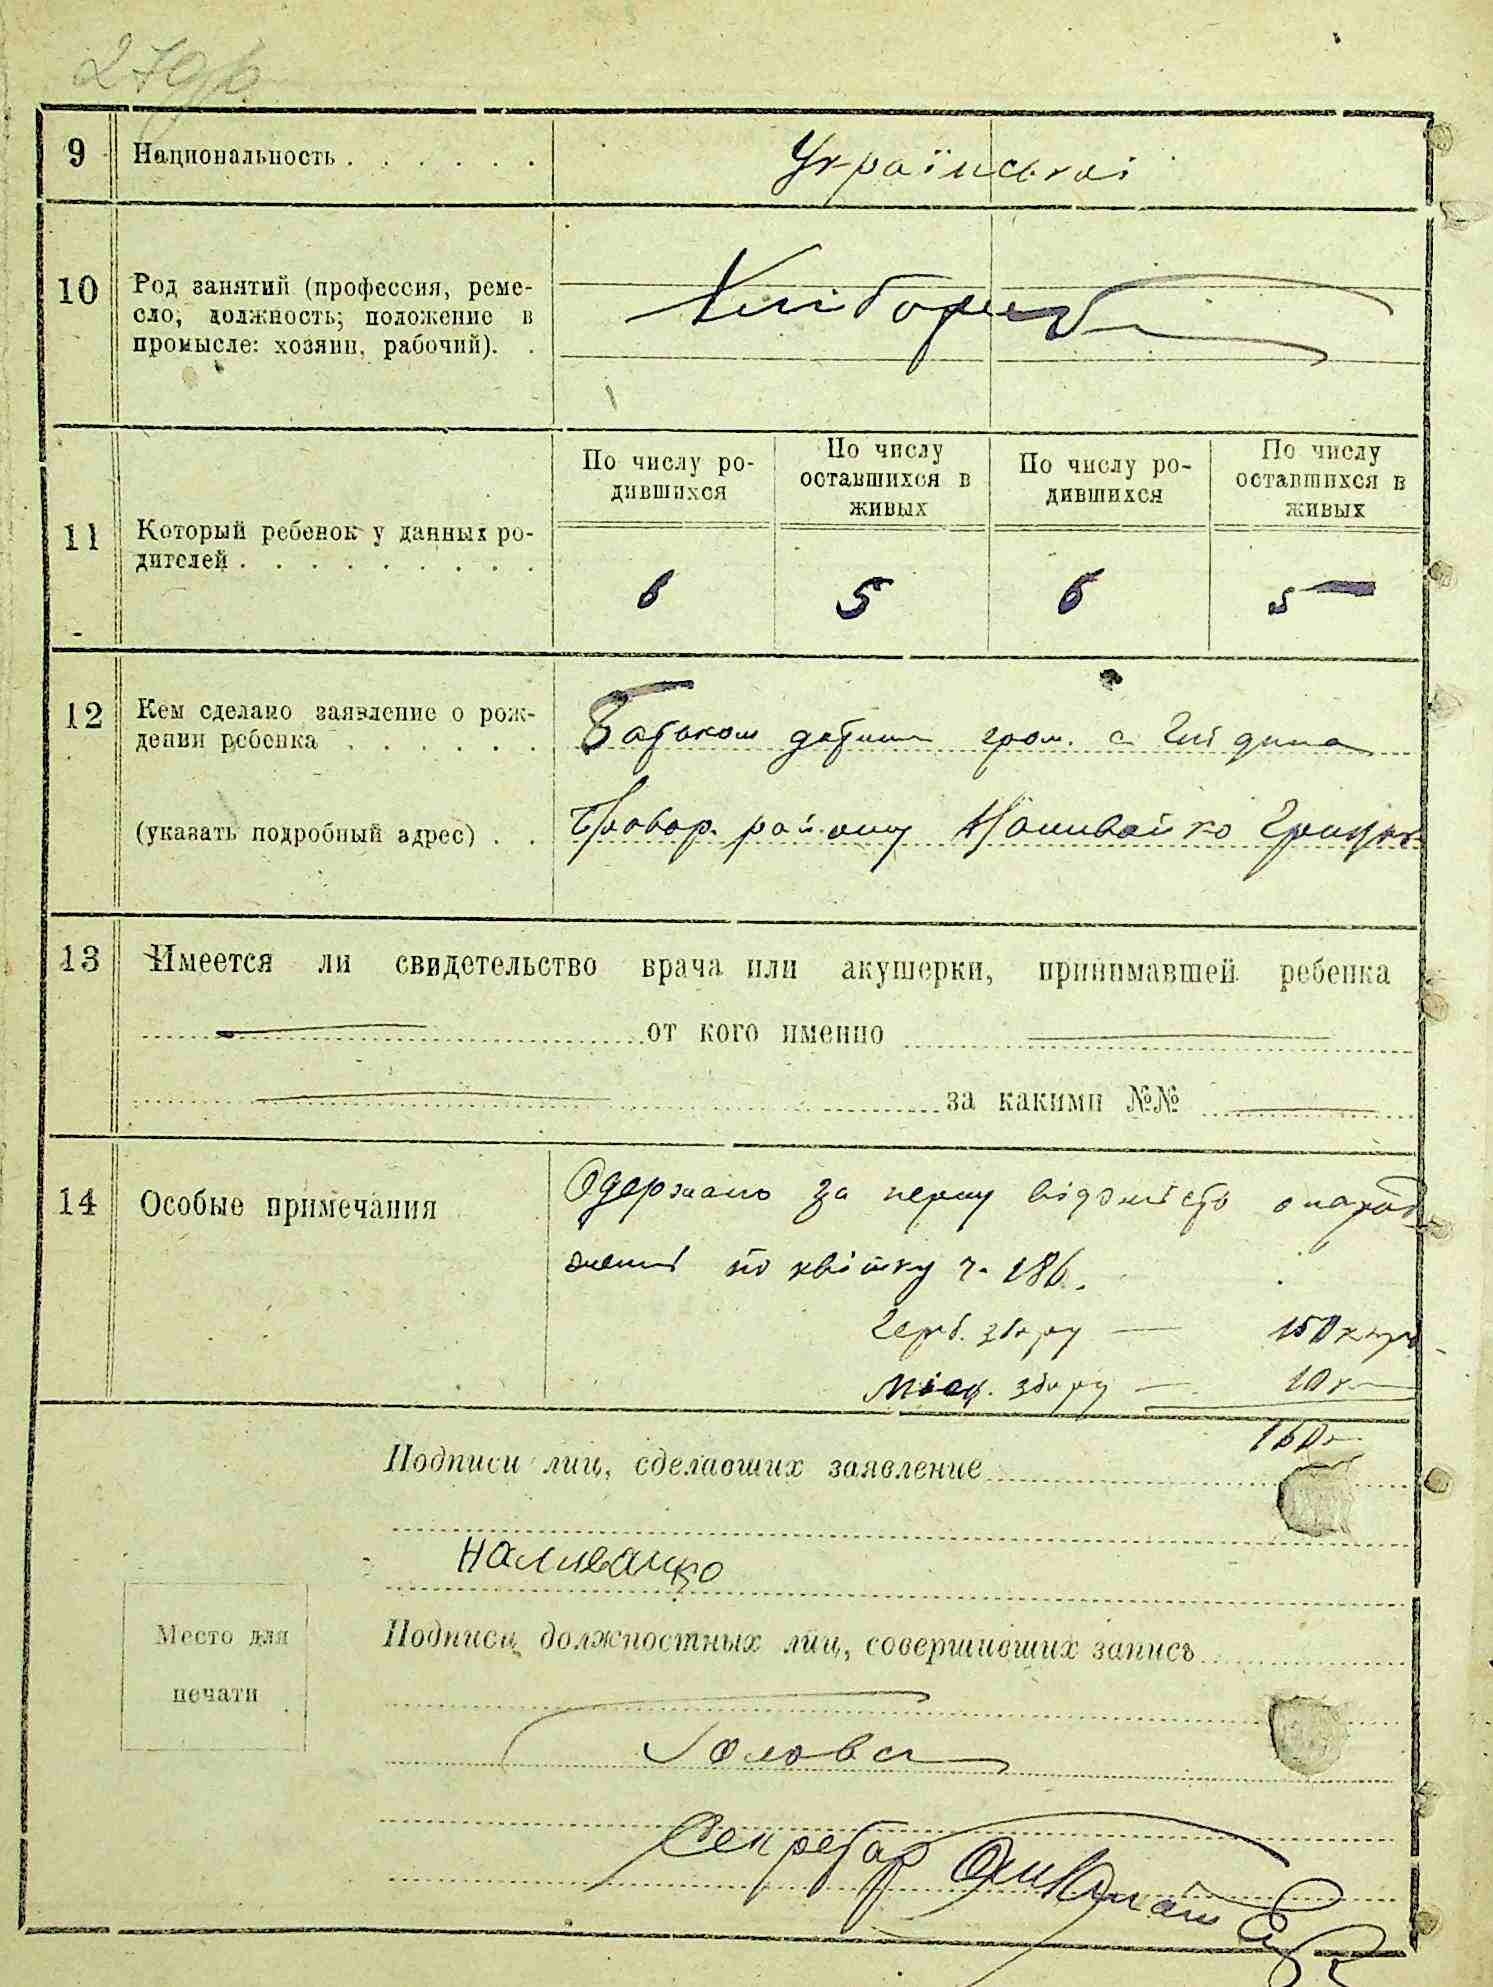 9 Национальность . . . . . .
Українські
10 Род занятий (профессия, реме-
сло, должность; положение в
промысле: хозяин, рабочий). .
Хлібороб
11 Который ребенок у данных ро-
дителей . . . . . . . . .
По числу ро-
дившихся
По числу
оставшихся в
живых
По числу ро-
дившихся
По числу
оставшихся в
живых
6 5 6 5
12 Кем сделано заявление о рож-
дении ребенка . . . . . .
(указать подробный адрес) . .
Батьком дитини гром. с.
району Наливайко
13 Имеется ли свидетельство врача или акушерки, принимавшей ребенка
от кого именно
за какими №№
14 Особые примечания
Одержано за першу відомість о народ
ження по квітку ч. 186.
Герб. збору — 150 коп.
Місц. збору — 10 к
160 к
Подписи лиц, сделавших заявление
Наливайко
Место для
печати
Подписи должностных лиц, совершивших запись
Голова
Секретар